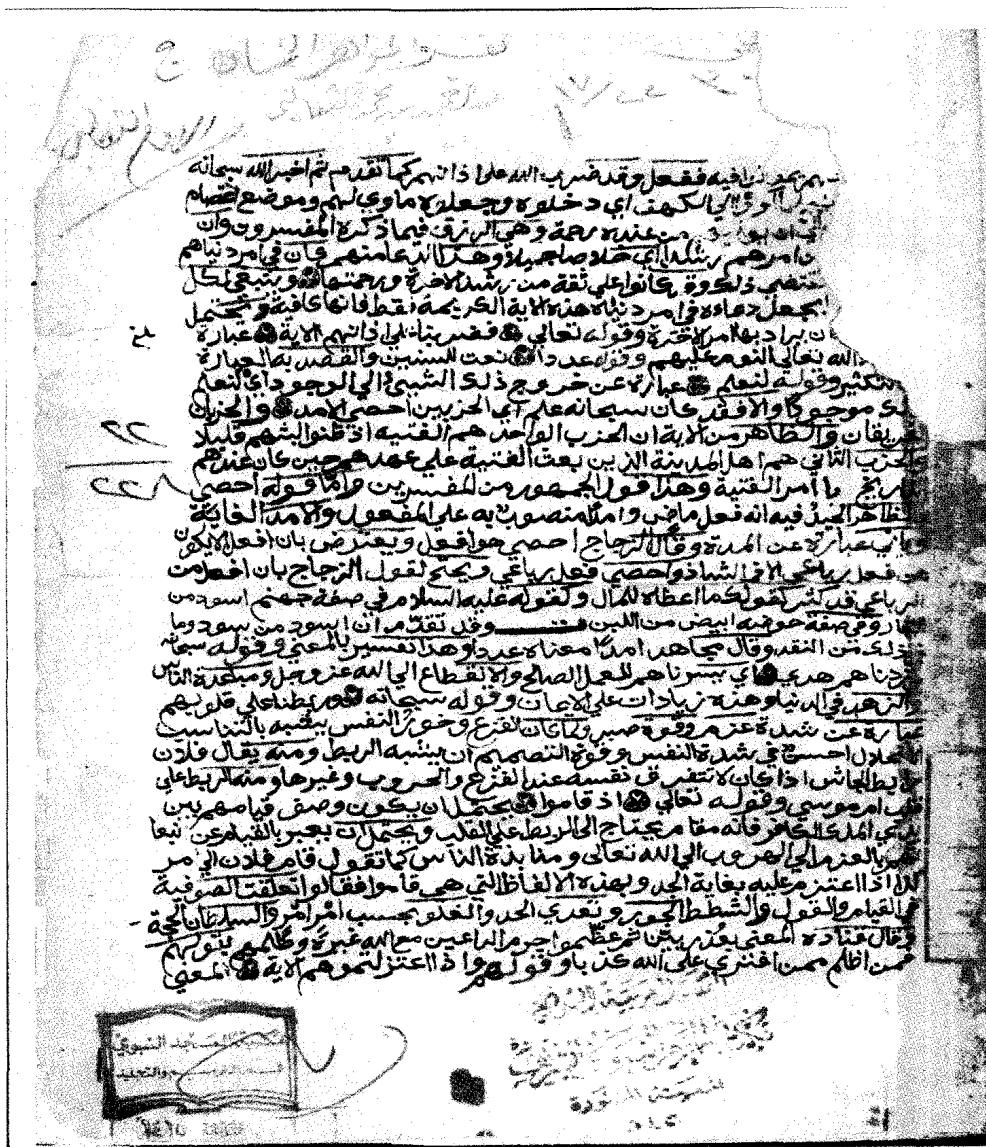 تفسير الجواهر الحسان ج
الامام الثعالبي
فيه ففعل وقد ضرب الله على اذانهم كما تقدم ثم اخبر الله سبحانه
الكهف اي دخلوه وجعلوه ماوى لهم وموضع اعتصام
من عنده رحمة وهي الرزق فيما ذكره المفسرون وان
امرهم رشدا اي خلاصا جميلا وهذا الدعا منهم كان في امر دنياهم
تقتضي ذلك وقد كانوا على ثقة من رشد الاخرة ورحمتها وينبغي لكل
يجعل دعاءه في امر دنياه هذه الاية الكريمة فقط فانها كافية ويحتمل
ان يراد بها امر الاخرة وقوله تعالى فضربنا على اذانهم الاية عبارة
بلغ
الله تعالى النوم عليهم وقوله عددا نعت للسنين والقصد به العبارة
التكثير وقوله لنعلم عبارة عن خروج ذلك الشيئ الي الوجود اي لنعلم
ذلك موجودا والا فقد كان سبحانه علم اي الحزبين احصى الامد والحزبان
الفريقان والظاهر من الاية ان الحزب الواحد هم الفتية اذ ظنوا لبثهم قليلا
٢٢
والحزب الثاني هم اهل المدينة الذين بعث الفتية علي عهدهم حين كان عندهم
٢٢٨
التاريخ بامر الفتية وهذا قول الجمهور من المفسرين واما قوله احصى
فالظاهر الجيد فيه انه فعل ماض وامدا منصوب به علي المفعول والامد الغاية
وياتي عبارة عن المدة وقال الزجاج احصى هو افعل ويعترض بان افعل لا يكون
من فعل رباعي الا في الشاذ واحصى فعل رباعي ويحتج لقول الزجاج بان افعل من
الرباعي قد كثر كقولك ما اعطاه للمال وكقوله عليه السلام في صفة جهنم اسود من
القار وفي صفة حوضه ابيض من اللبن وقد تقدم ان اسود من سود وما
ذلك من النقد وقال مجاهد امدا معناه عددا وهذا تفسير بالمعنى وقوله سبحانه
وزدناهم هدى اي يسرناهم للعمل الصالح والانقطاع الي الله عز وجل ومباعدة الناس
والزهد في الدنيا وهذه زيادات على الايمان وقوله سبحانه وربطنا على قلوبهم
عبارة عن شدة عزم وقوة صبر ولما كان الفزع وخور النفس يشبه بالتناسب
الانحلال احسن في شدة النفس وقوة التصميم ان يشبه الربط ومنه يقال فلان
رابط الجاش اذا كان لا تتفرق نفسه عند الفزع والحروب وغيرها ومنه الربط على
قلب ام موسى وقوله تعالى اذ قاموا يحتمل ان يكون وصف قيامهم بين
يدي الملك الكافر فانه مقام يحتاج الى الربط على القلب ويحتمل ان يعبر بالقيام عن انبعا
ثهم بالعزم الي الهروب الي الله تعالى ومنابذة الناس كما تقول قام فلان الي امر
كذا اذا اعتزم عليه بغاية الجد وبهذه الالفاظ التي هي قاموا فقالوا تعلقت الصوفية
في القيام والقول والشطط الجور وتعدي الحد والغلو بحسب امر امر والسلطان الحجة
وقال قتادة المعنى بعذر بين ثم عظموا جرم الداعين مع الله غيره وظلمهم بقولهم
فمن اظلم ممن افترى على الله كذبا وقولهم واذا اعتزلتموهم الاية المعنى
مكتبة المسجد النبوي
قسم الترميم والتجليد